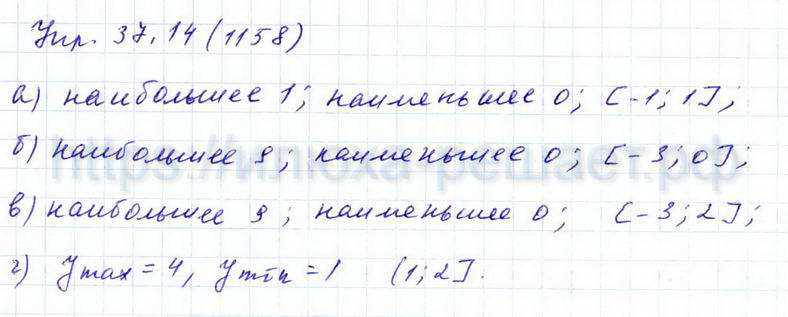 Упр. 37.14 (1158)
а) наибольшее 1; наименьшее 0; [-1; 1];
б) наибольшее 9; наименьшее 0; [-3; 0];
в) наибольшее 9; наименьшее 0; [-3; 2];
г) y max = 4, y min = 1 (1; 2].
https://илюха-решает.рф